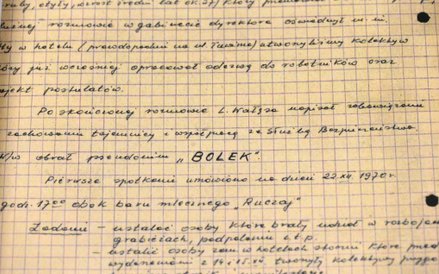 otyły, wzrost średni lat ok. 37/ który
rozmowie w gabinecie dyrektora oświadczył m. in.
w hotelu /prawdopodobnie na ul. / utworzyliśmy Kolektyw
który już wcześniej opracował odezwę do robotników oraz
postulatów.
Po skończonej rozmowie L. Wałęsa napisał zobowiązanie
zachowaniu tajemnicy i współpracy ze Służbą Bezpieczeństwa
W/w obrał pseudonim „BOLEK".
Pierwsze spotkanie umówiono na dzień 22.XII. 1970 r.
godz. 17⁰⁰ obok baru mlecznego „Ruczaj"
Zadania – ustalać osoby które brały udział w rozbojach
grabieżach, podpaleniu i t. p.
– ustalić osoby zam. w hotelach które przed
wydarzeniami z 14 i 15.XII tworzyły kolektywy